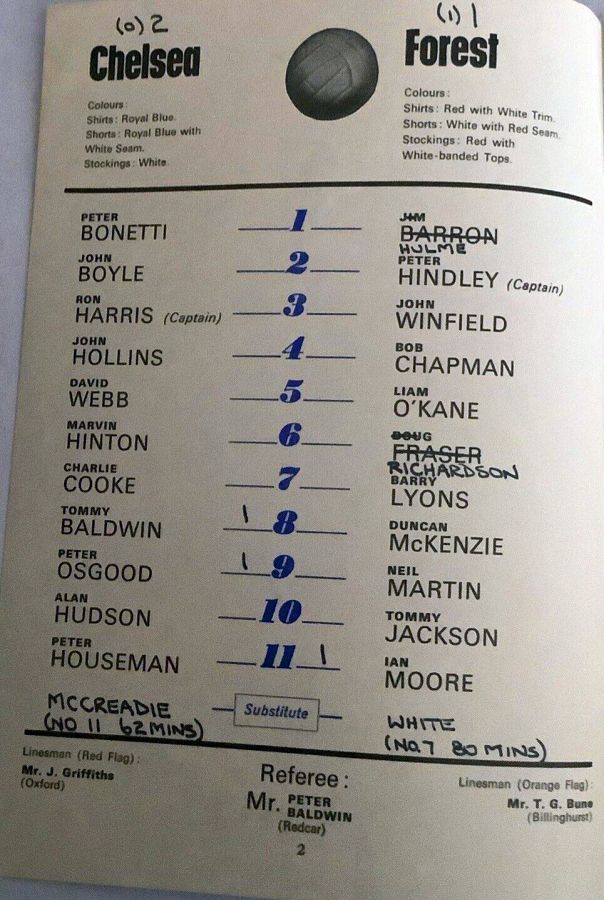 (0) 2
Chelsea
Colours:
Shirts: Royal Blue.
Shorts: Royal Blue with
White Seam.
Stockings: White.
(1) 1
Forest
Colours:
Shirts: Red with White Trim.
Shorts: White with Red Seam.
Stockings: Red with
White-banded Tops.
PETER
BONETTI
1
JIM
BARRON
HULME
JOHN
BOYLE
2
PETER
HINDLEY (Captain)
RON
HARRIS (Captain)
3
JOHN
WINFIELD
JOHN
HOLLINS
4
BOB
CHAPMAN
DAVID
WEBB
5
LIAM
O'KANE
MARVIN
HINTON
6
DOUG
FRASER
RICHARDSON
CHARLIE
COOKE
7
BARRY
LYONS
TOMMY
BALDWIN
1 8
DUNCAN
McKENZIE
PETER
OSGOOD
1 9
NEIL
MARTIN
ALAN
HUDSON
10
TOMMY
JACKSON
PETER
HOUSEMAN
11 1
IAN
MOORE
MCCREADIE
(NO 11 62 MINS)
Substitute
WHITE
(NO.7 80 MINS)
Linesman (Red Flag):
Mr. J. Griffiths
(Oxford)
Referee:
Mr. PETER
BALDWIN
(Redcar)
Linesman (Orange Flag):
Mr. T. G. Bune
(Billinghurst)
2